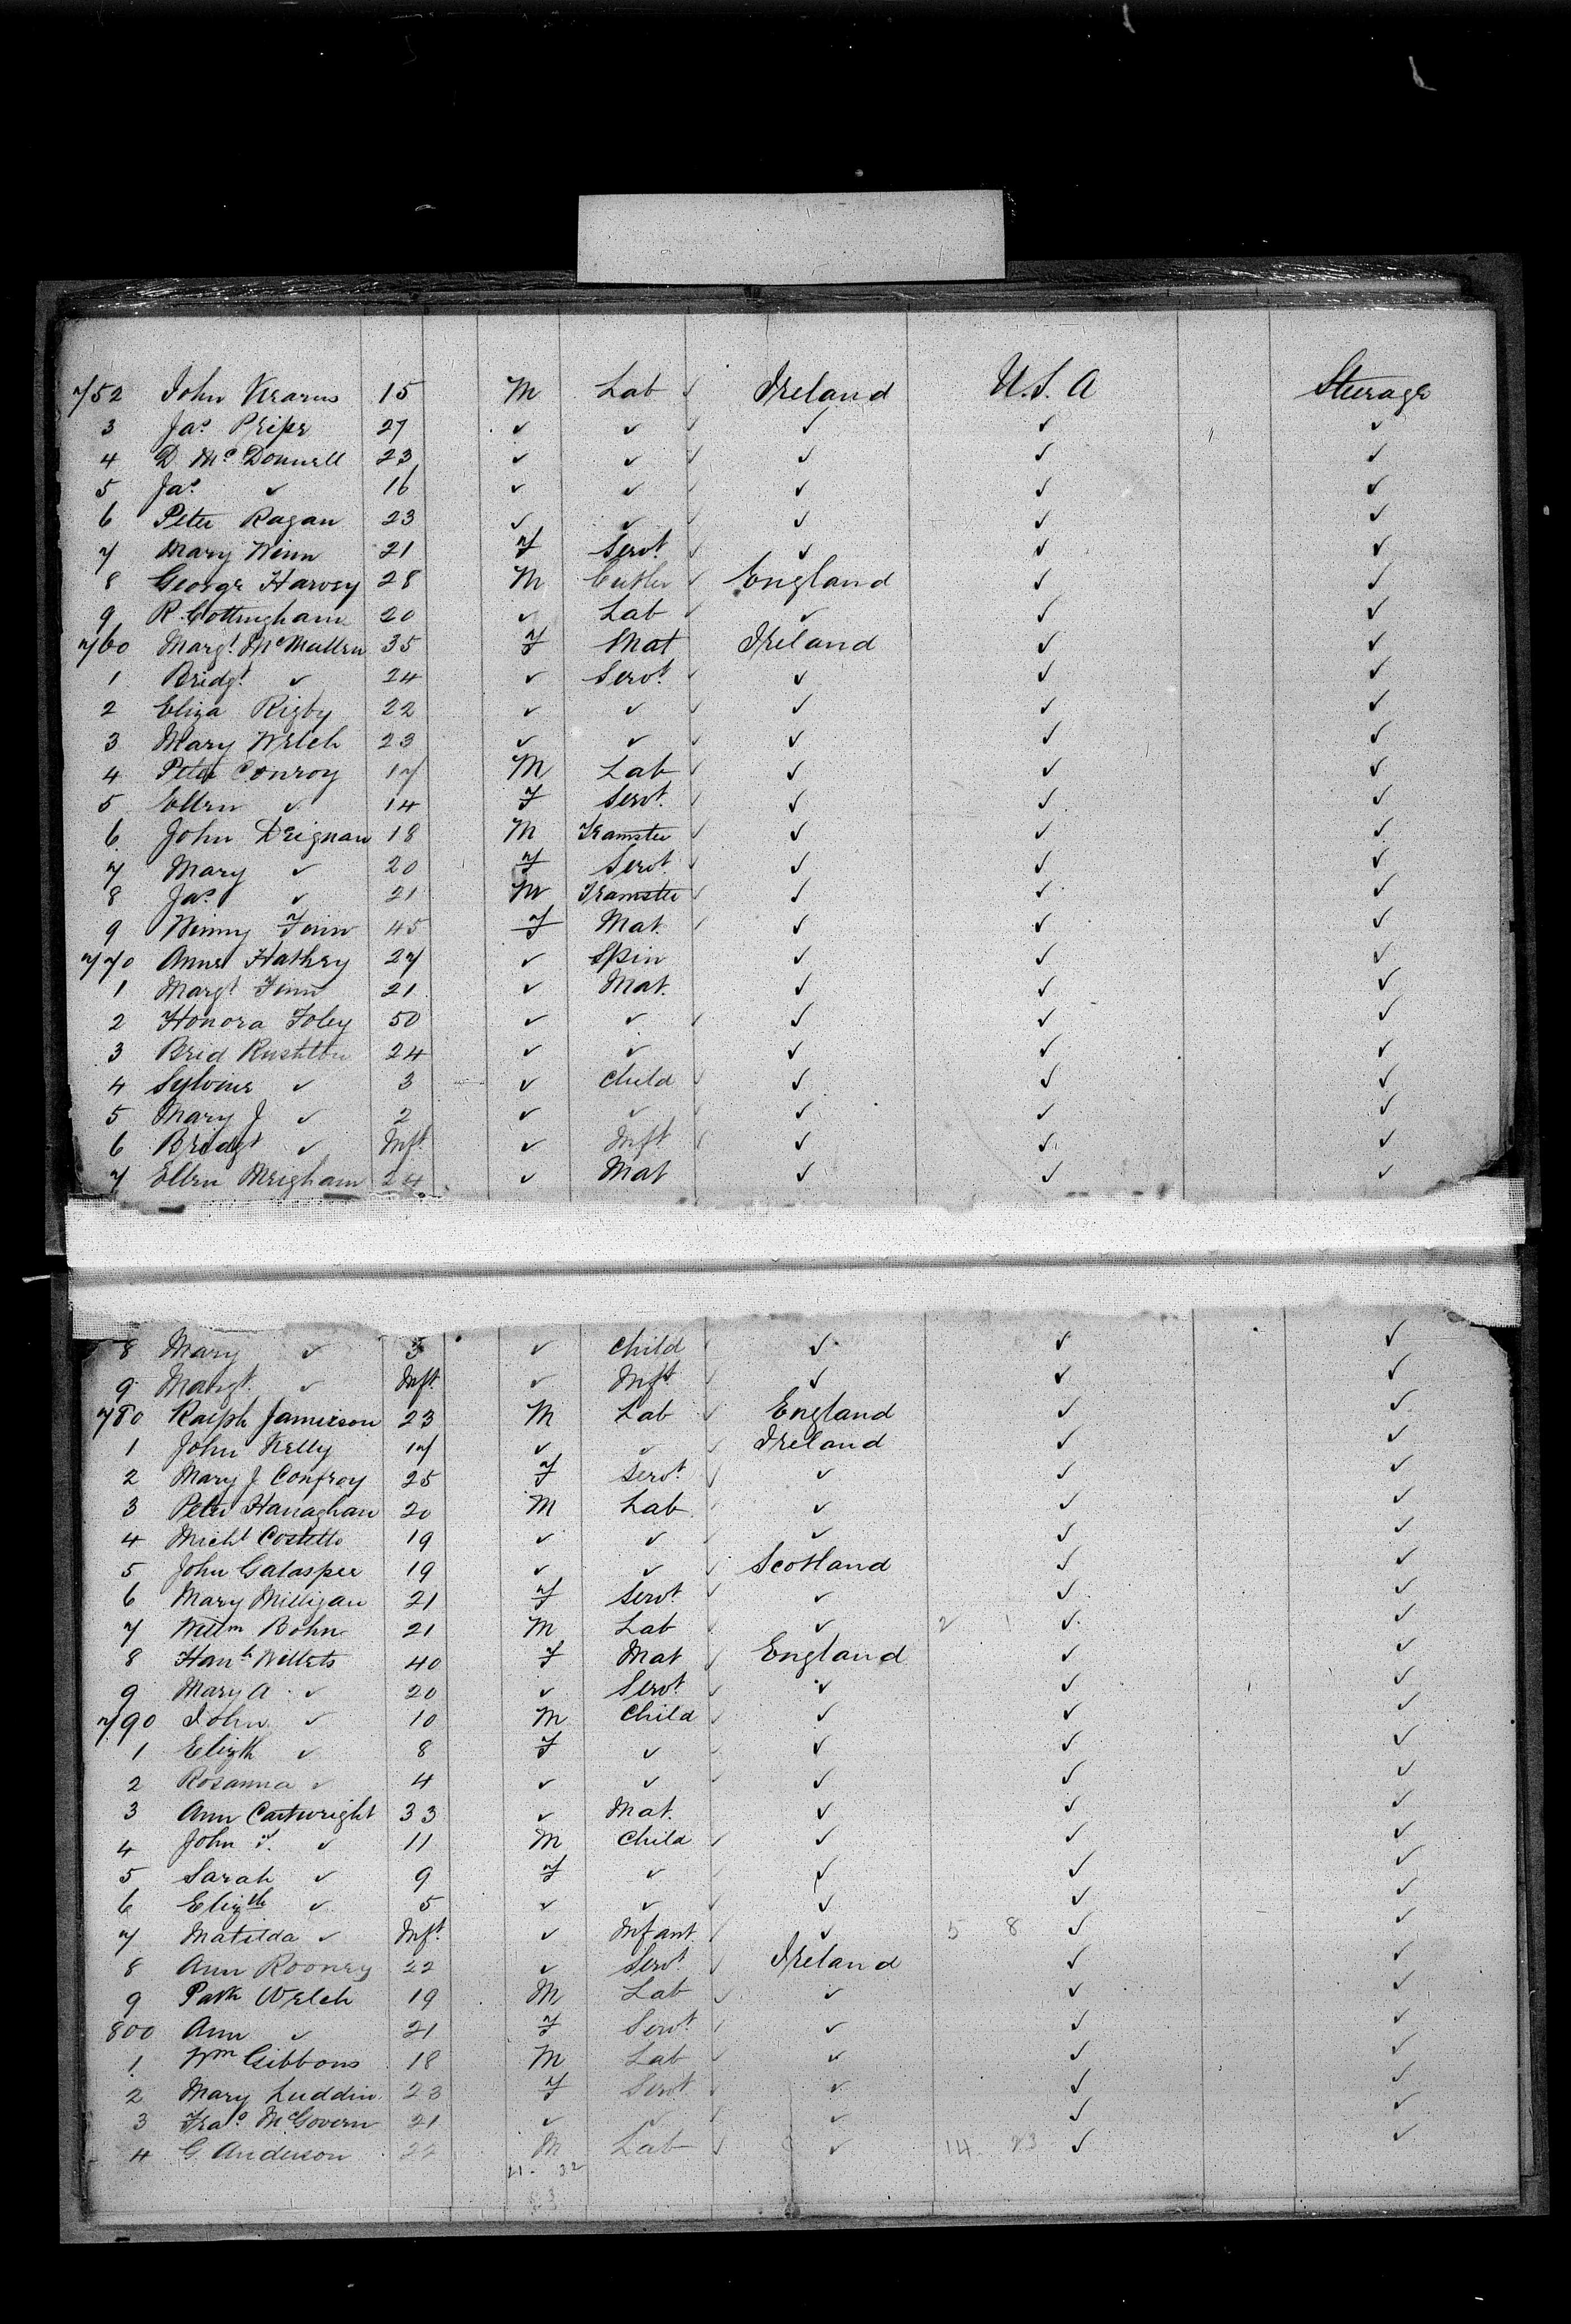 752 John Kearns 15 M Lab ✓ Ireland U.S.A Steerage
3 Jas Pripe 27 ✓ ✓ ✓ ✓ ✓ ✓
4 D. McDonnell 23 ✓ ✓ ✓ ✓ ✓ ✓
5 Jas ✓ 16 ✓ ✓ ✓ ✓ ✓ ✓
6 Peter Ragan 23 ✓ ✓ ✓ ✓ ✓ ✓
7 Mary Winn 21 F Servt ✓ ✓ ✓ ✓
8 George Harvey 28 M Cutler ✓ England ✓ ✓
9 R. Cottingham 20 ✓ Lab ✓ ✓ ✓ ✓
760 Margt McMullen 35 F Mat Ireland ✓ ✓
1 Bridgt ✓ 24 ✓ Servt ✓ ✓ ✓ ✓
2 Eliza Rigby 22 ✓ ✓ ✓ ✓ ✓ ✓
3 Mary Welch 23 ✓ ✓ ✓ ✓ ✓ ✓
4 Peter Conroy 17 M Lab ✓ ✓ ✓ ✓
5 Ellen ✓ 14 F Servt ✓ ✓ ✓ ✓
6 John Deignan 18 M Teamster ✓ ✓ ✓ ✓
7 Mary ✓ 20 F Servt ✓ ✓ ✓ ✓
8 Jas ✓ 21 M Teamster ✓ ✓ ✓ ✓
9 Winny Finn 45 F Mat ✓ ✓ ✓ ✓
770 Anne Hathey 27 ✓ Spin ✓ ✓ ✓
1 Margt Finn 21 ✓ Mat ✓ ✓ ✓
2 Honora Foley 50 ✓ ✓ ✓ ✓ ✓ ✓
3 Brid 24 ✓ ✓ ✓ ✓ ✓
4 ✓ 3 ✓ Child ✓ ✓ ✓ ✓
5 Mary J ✓ 2 ✓ ✓ ✓ ✓ ✓ ✓
6 Bridgt ✓ Inft ✓ Inft ✓ ✓ ✓ ✓
7 Ellen Meigham 24 ✓ Mat ✓ ✓ ✓
8 Mary ✓ 3 ✓ Child ✓ ✓ ✓ ✓
9 Margt ✓ Inft ✓ Inft ✓ ✓ ✓ ✓
780 Ralph Jamieson 23 M Lab ✓ England ✓ ✓
1 John Kelly 17 ✓ ✓ ✓ Ireland ✓ ✓
2 Mary J. Confroy 25 F Servt ✓ ✓ ✓ ✓
3 Peter Hanaghan 20 M Lab ✓ ✓ ✓ ✓
4 Michl Costello 19 ✓ ✓ ✓ ✓ ✓ ✓
5 John Galasper 19 ✓ ✓ ✓ Scotland ✓ ✓
6 Mary Milligan 21 F Servt ✓ ✓ ✓ ✓
7 Willm Bohn 21 M Lab ✓ ✓ 2 1 ✓ ✓
8 Hanh Willets 40 F Mat ✓ England ✓ ✓
9 Mary A ✓ 20 ✓ Servt ✓ ✓ ✓ ✓
790 John ✓ 10 M Child ✓ ✓ ✓ ✓
1 Elizth ✓ 8 F ✓ ✓ ✓ ✓ ✓
2 Rosanna ✓ 4 ✓ ✓ ✓ ✓ ✓ ✓
3 Ann Cartwright 33 ✓ Mat. ✓ ✓ ✓
4 John T. ✓ 11 M Child ✓ ✓ ✓ ✓
5 Sarah ✓ 9 F ✓ ✓ ✓ ✓ ✓
6 Elizth ✓ 5 ✓ ✓ ✓ ✓ ✓ ✓
7 Matilda ✓ Inft ✓ Infant ✓ ✓ 5 8 ✓ ✓
8 Ann Rooney 22 ✓ Servt ✓ Ireland ✓ ✓
9 Patk Welch 19 M Lab ✓ ✓ ✓ ✓
800 Ann ✓ 21 F Servt ✓ ✓ ✓ ✓
1 Wm Gibbons 18 M Lab ✓ ✓ ✓ ✓
2 Mary Luddin 23 F Servt ✓ ✓ ✓ ✓
3 Fras McGovern 21 ✓ ✓ ✓ ✓ ✓ ✓
4 G. Anderson 22 M Lab ✓ ✓ 14 23 ✓ ✓
21 - 32
53